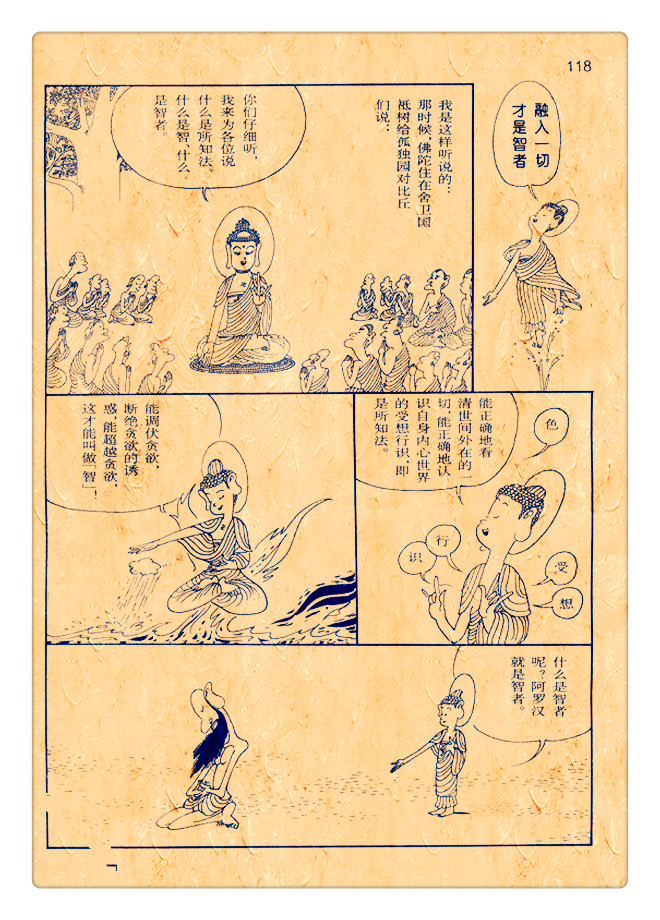 118
融入一切
才是智者
我是这样听说的：
那时候，佛陀住在舍卫国
祗树给孤独园对比丘
们说：
你们仔细听，
我来为各位说
什么是所知法、
什么是智、什么
是智者。
能正确地看
清世间外在的一
切，能正确地认
识自身内心世界
的受想行识，即
是所知法。
色
行
识
受
想
能调伏贪欲，
断绝贪欲的诱
惑，能超越贪欲，
这才能叫做「智」！
什么是智者
呢？阿罗汉
就是智者。